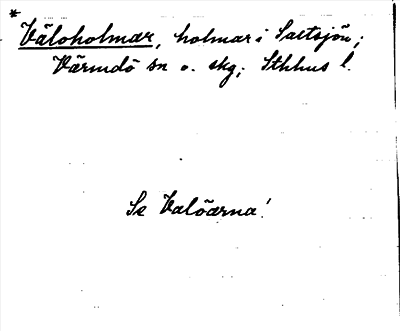 * Väloholmar, holmar i Saltsjön;
Värmdö sn o. skg; Sthlms l.
Se Valöarna!